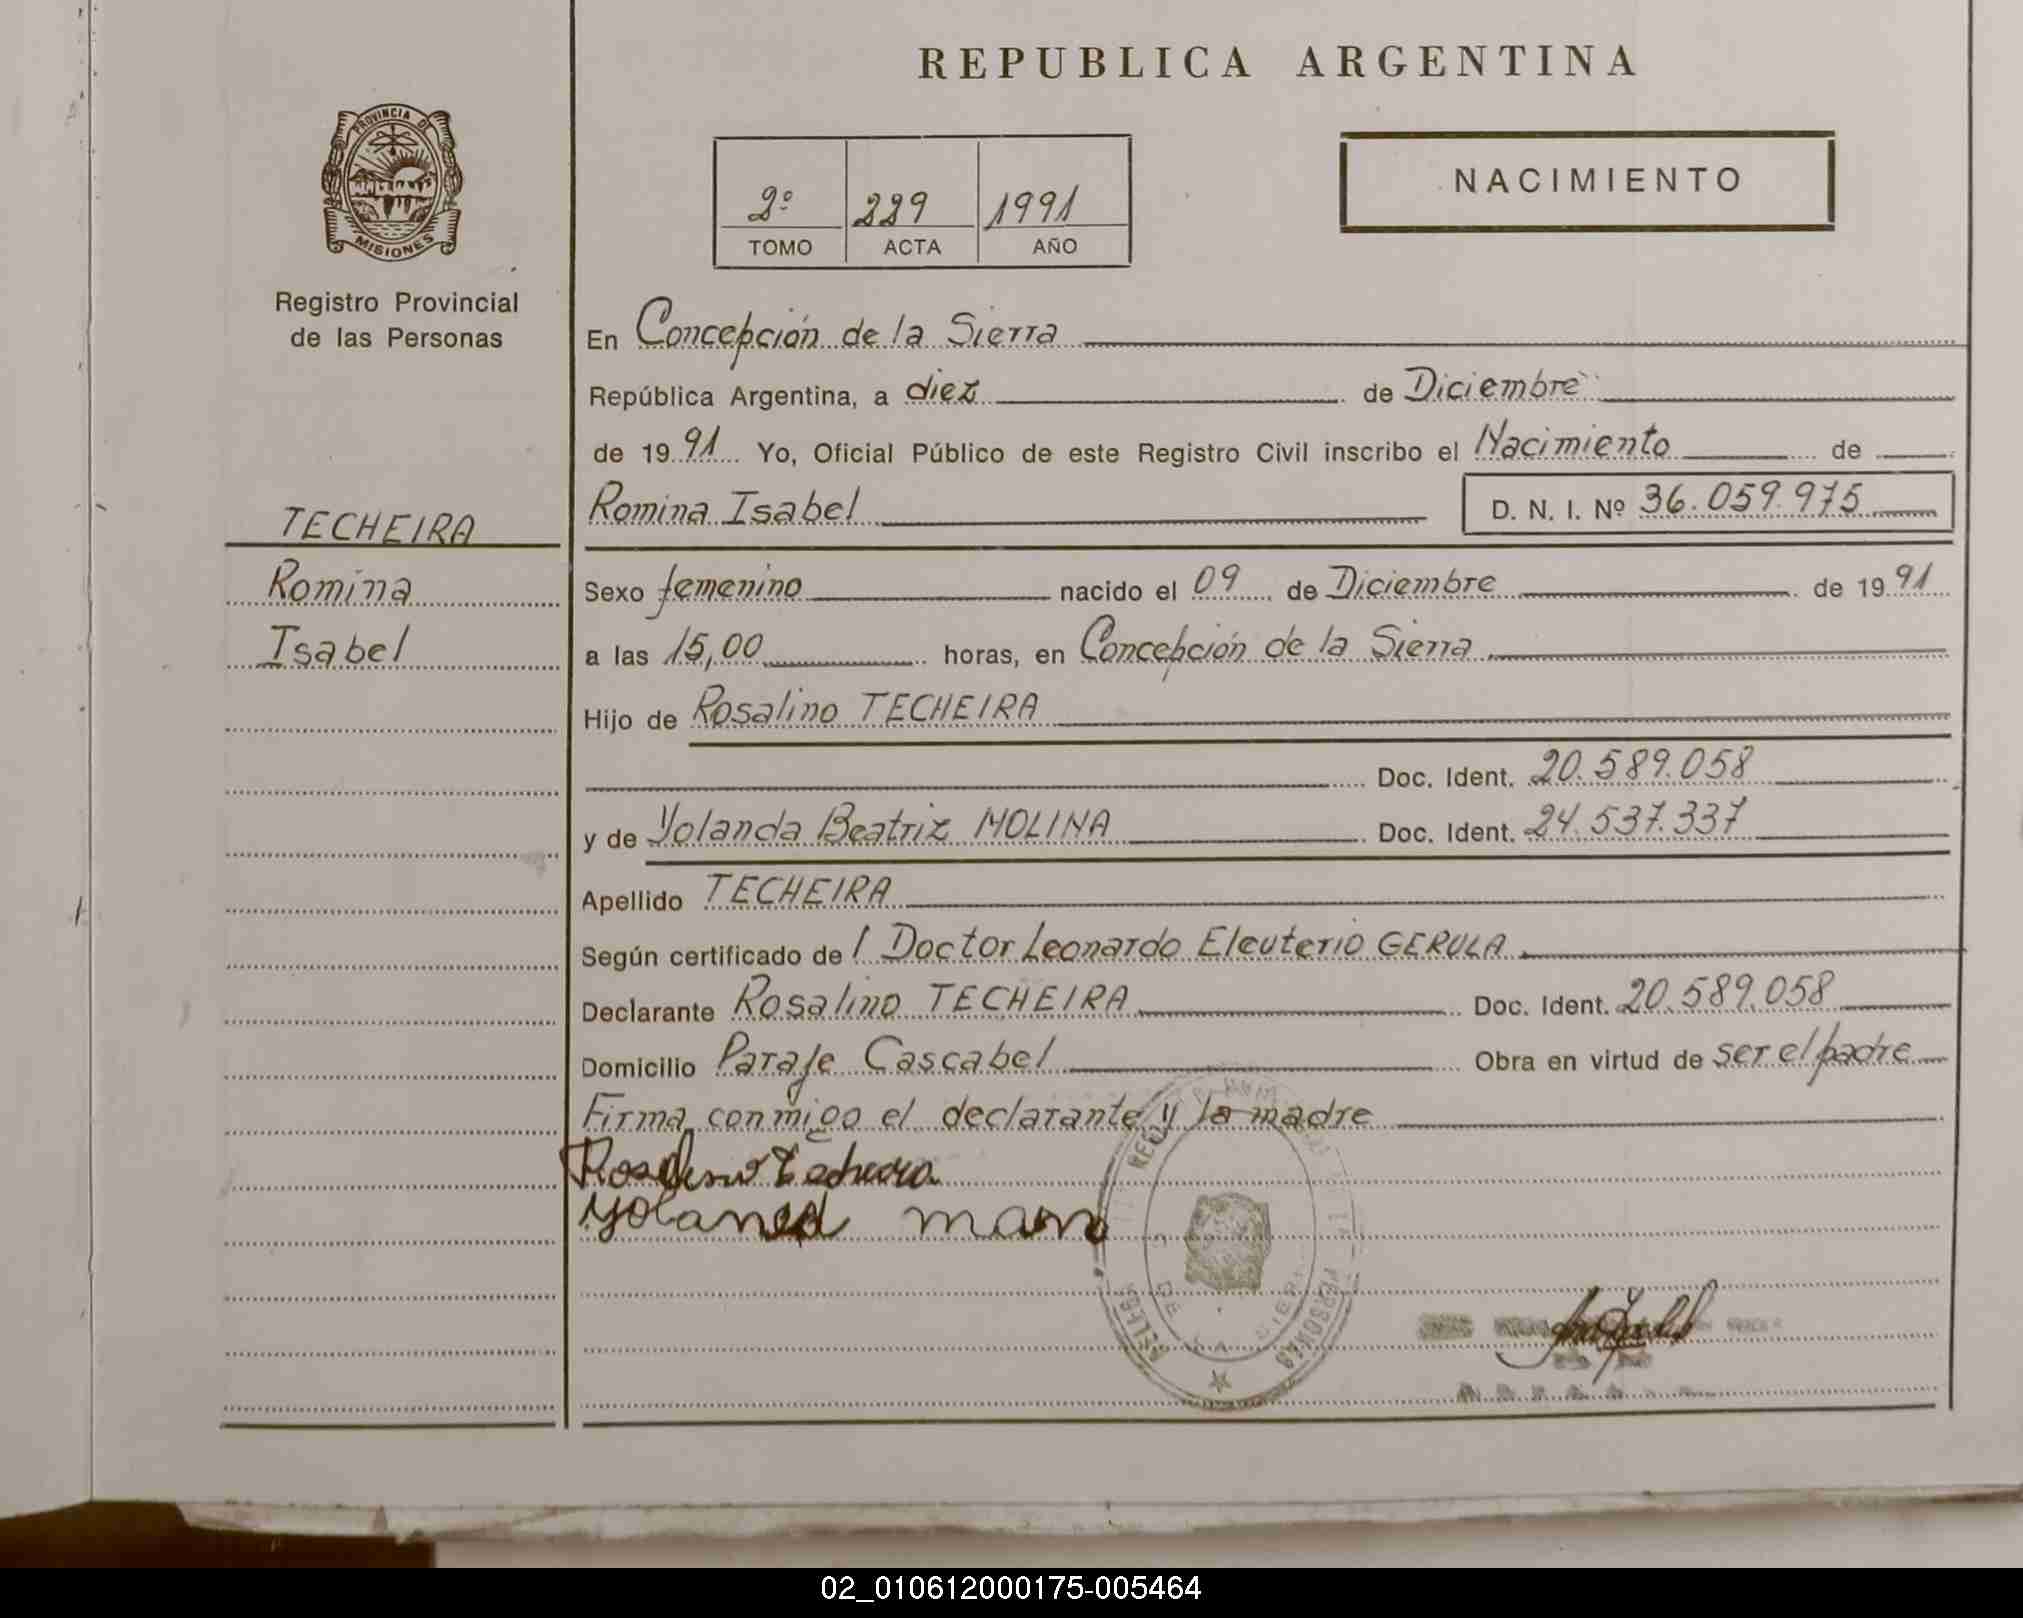 REPUBLICA ARGENTINA
PROVINCIA DE
MISIONES
Registro Provincial
de las Personas
2º 229 1991
TOMO ACTA AÑO
NACIMIENTO
En Concepción de la Sierra
República Argentina, a diez de Diciembre
de 1991 Yo, Oficial Público de este Registro Civil inscribo el Nacimiento de
TECHEIRA
Romina
Isabel
Romina Isabel D. N. I. Nº 36.059.975
Sexo femenino nacido el 09 de Diciembre de 1991
a las 15,00 horas, en Concepción de la Sierra
Hijo de Rosalino TECHEIRA
Doc. Ident. 20.589.058
y de Yolanda Beatriz MOLINA Doc. Ident. 24.537.337
Apellido TECHEIRA
Según certificado de l Doctor Leonardo Eleuterio GERULA
Declarante Rosalino TECHEIRA Doc. Ident. 20.589.058
Domicilio Paraje Cascabel Obra en virtud de ser el padre
Firma conmigo el declarante y la madre
PERSONAS
DE LA SIERRA
02_010612000175-005464